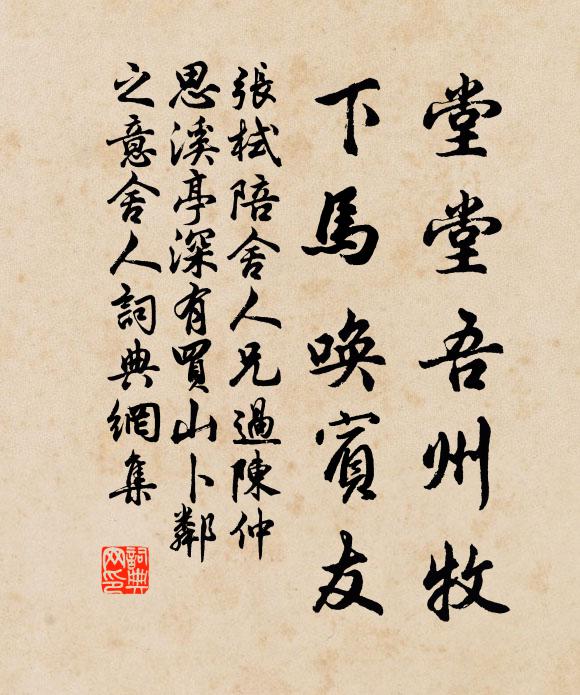 堂堂吾州牧
下馬喚賓友
張栻陪舍人兄過陳仲
思溪亭深有買山卜鄰
之意舍人詞典網集
詞典网印